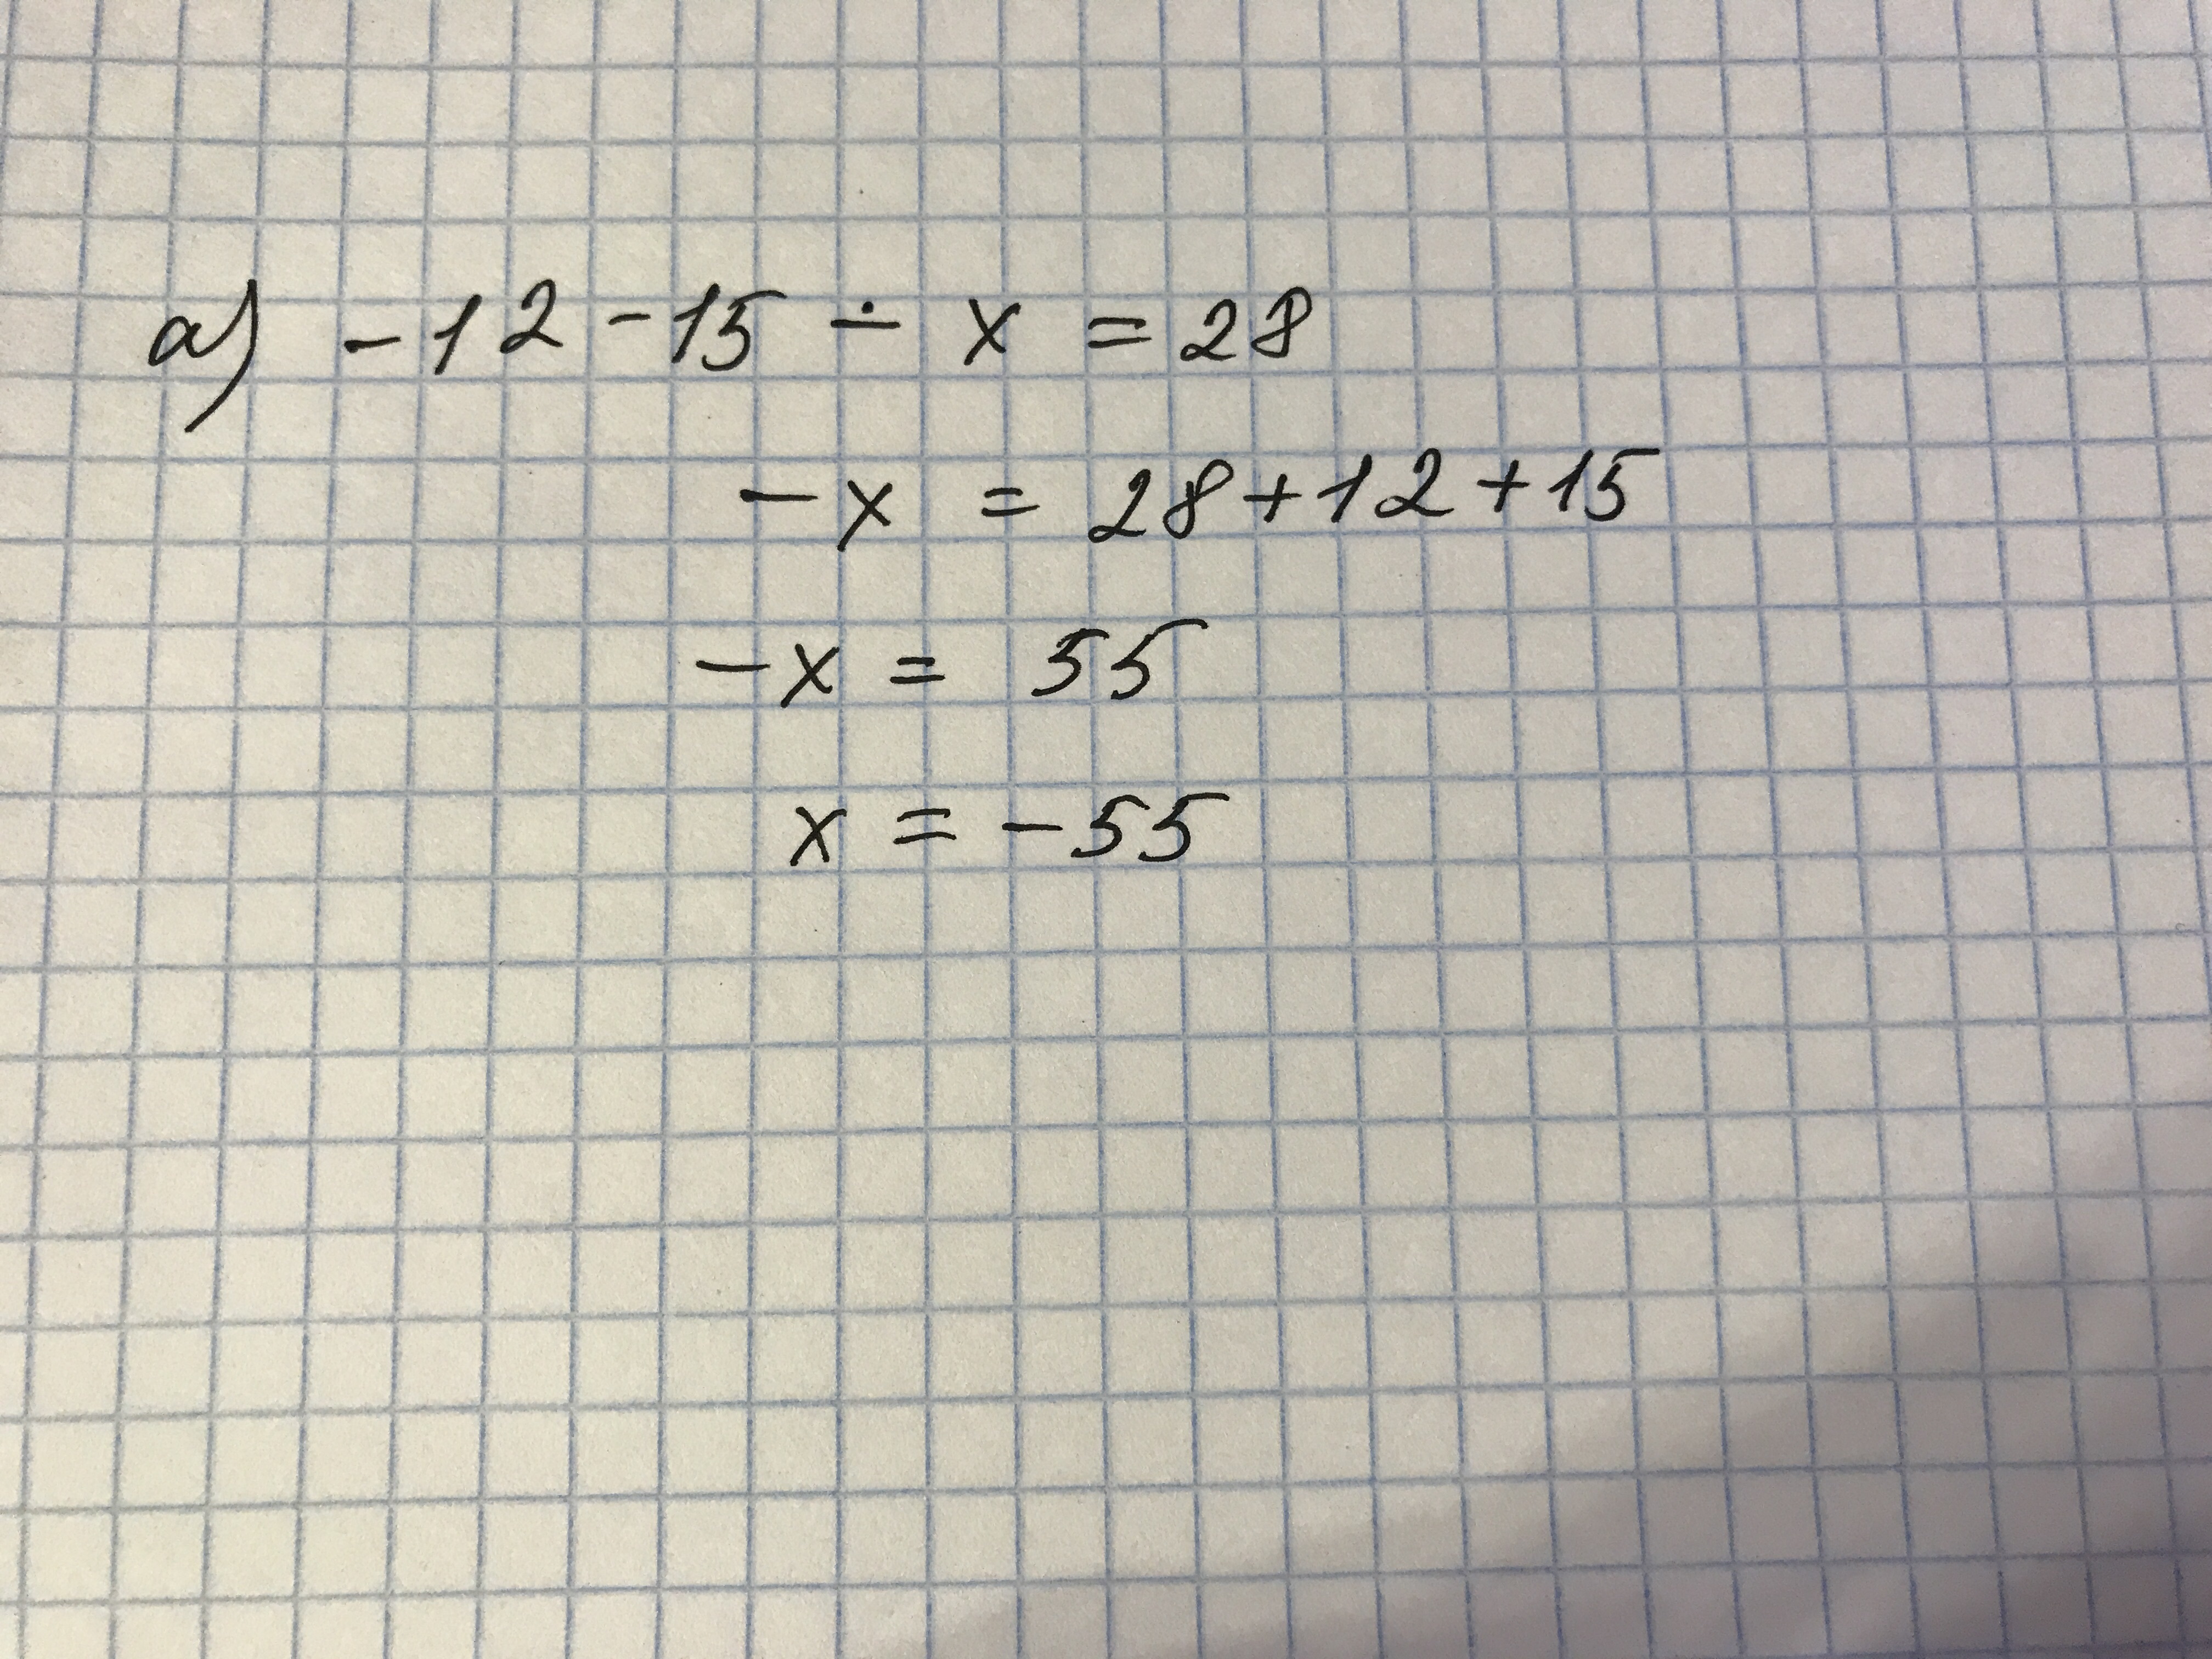 а) -12 -15 - x = 28
-x = 28+12+15
-x = 55
x = -55